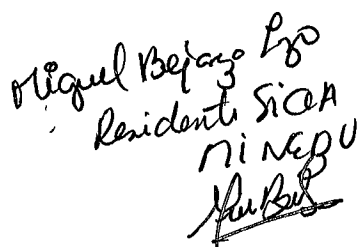 Miguel Bejazo Lzo
Residente SICA
MINEDU